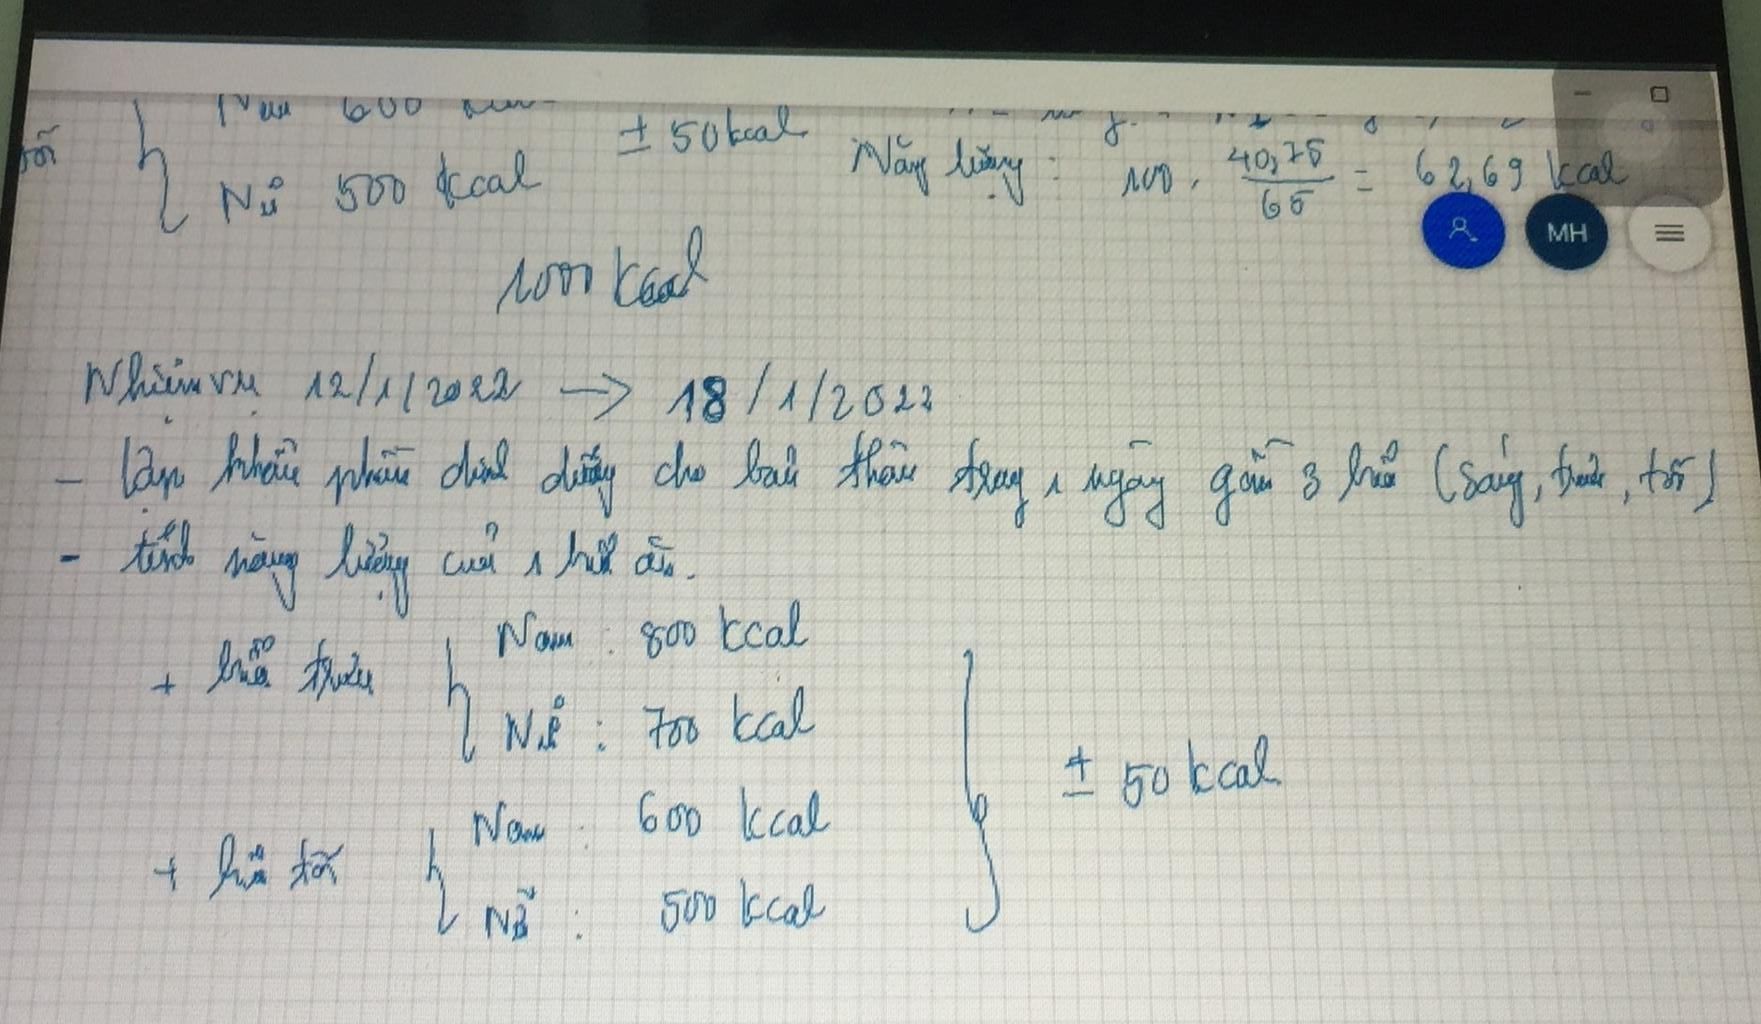 Nam 600 kcal
tối
± 50 kcal
Nữ 500 kcal
Năng lượng : 100 . 40,75 / 65 = 62,69 kcal
MH
1000 kcal
Nhiệm vụ 12/1/2022 → 18/1/2022
- Lập khẩu phần dinh dưỡng cho bản thân trong 1 ngày gồm 3 bữa (sáng, trưa, tối)
- tính năng lượng của 1 bữa ăn.
+ bữa trưa
Nam : 800 kcal
Nữ : 700 kcal
± 50 kcal
+ bữa tối
Nam : 600 kcal
Nữ : 500 kcal